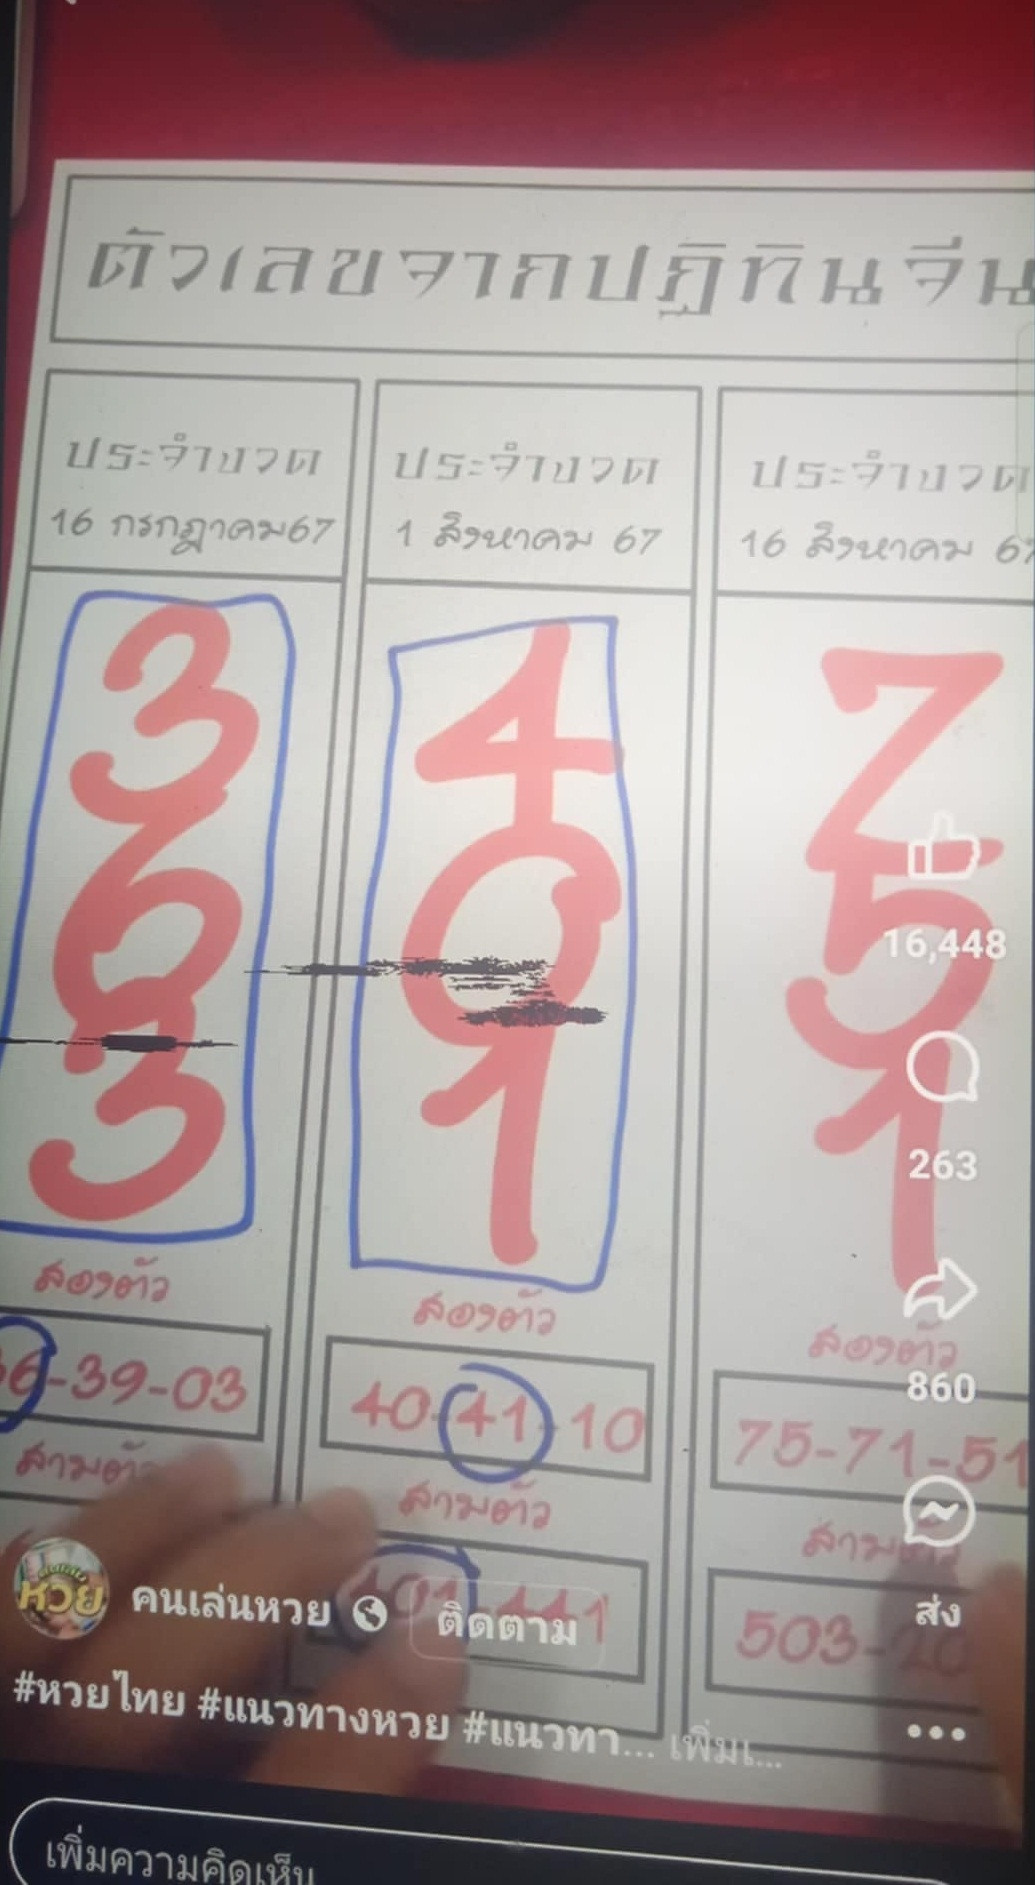 ตัวเลขจากปฏิทินจีน
ประจำงวด
16 กรกฎาคม67
3
6
3
สองตัว
6-39-03
สามตัว
ประจำงวด
1 สิงหาคม 67
4
0
1
สองตัว
40-41-10
สามตัว
ประจำงวด
16 สิงหาคม 67
7
5
1
สองตัว
75-71-51
สามตัว
503-20
16,448
263
860
ส่ง
หวย
คนเล่นหวย
ติดตาม
#หวยไทย #แนวทางหวย #แนวทา... เพิ่มเ...
เพิ่มความคิดเห็น